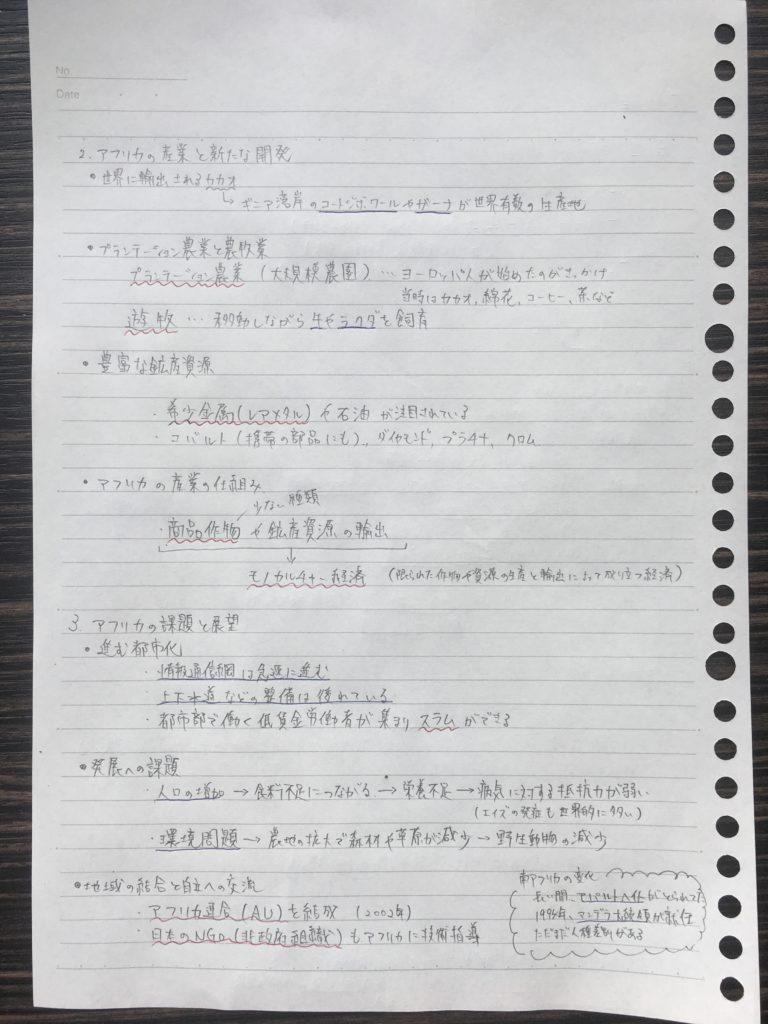 No.
Date
2. アフリカの産業と新たな開発
• 世界に輸出されるカカオ
↳ ギニア湾岸のコートジボワールやガーナが世界有数の生産地
• プランテーション農業と農牧業
プランテーション農業（大規模農園）… ヨーロッパ人が始めたのがきっかけ
当時はカカオ、綿花、コーヒー、茶など
遊牧 … 移動しながら牛やラクダを飼育
• 豊富な鉱産資源
・希少金属(レアメタル)や石油が注目されている
・コバルト(携帯の部品にも)、ダイヤモンド、プラチナ、クロム
• アフリカの産業の仕組み
少ない種類
・商品作物や鉱産資源の輸出
↓
モノカルチャー経済 （限られた作物や資源の生産と輸出によって成り立つ経済）
3. アフリカの課題と展望
• 進む都市化
・情報通信網は急速に進む
・上下水道などの整備は遅れている
・都市部で働く低賃金労働者が集まりスラムができる
• 発展への課題
・人口の増加 → 食料不足につながる → 栄養不足 → 病気に対する抵抗力が弱い
(エイズの発症も世界的に多い)
・環境問題 → 農地の拡大で森林や草原が減少 → 野生動物の減少
• 地域の結合と自立への交流
・アフリカ連合(AU)を結成 (2002年)
・日本のNGO(非政府組織)もアフリカに技術指導
南アフリカの変化
長い間、アパルトヘイトがとられてた
1994年、マンデラ大統領が就任
ただまだ人種差別がある